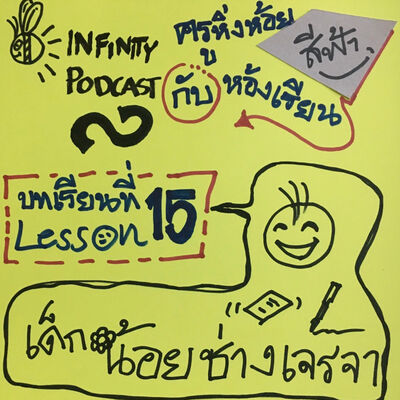 INFINITY
PODCAST
ครูหิ่งห้อย
กับ ห้องเรียน
สีฟ้า
บทเรียนที่ 15
Lesson
เด็กน้อยช่างเจรจา